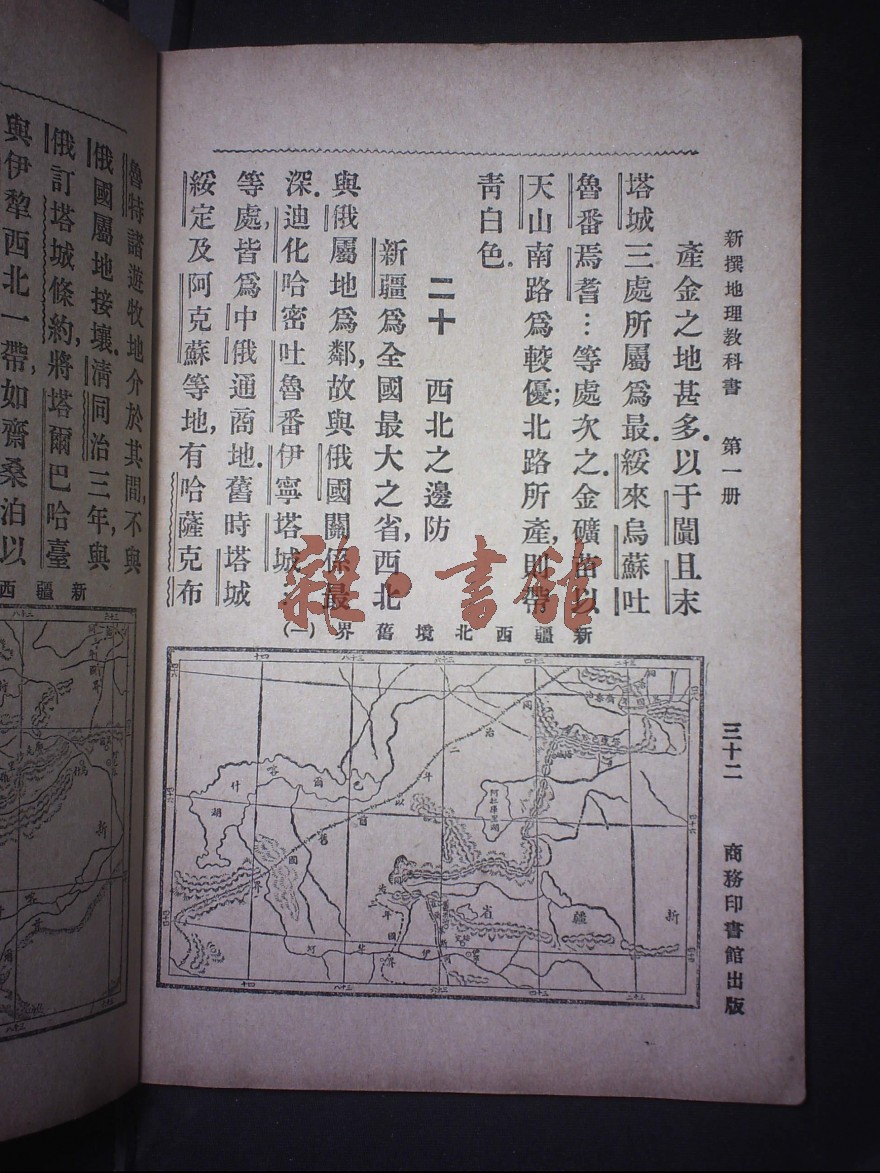 新撰地理教科書 第一册
三十二
商務印書館出版
產金之地甚多.以于闐且末
塔城三處所屬爲最.綏來烏蘇吐
魯番焉耆…等處次之.金礦苗以
天山南路爲較優;北路所產,則帶
靑白色.
二十 西北之邊防
新疆爲全國最大之省,西北
與俄屬地爲鄰,故與俄國關係最
深.迪化哈密吐魯番伊寧塔城
等處,皆爲中俄通商地.舊時塔城
綏定及阿克蘇等地,有哈薩克布
新疆西北境舊界(一)
新疆省
巴爾喀什湖
同治二年以前舊國界
伊犂河
魯特諸遊牧地介於其間,不與
俄國屬地接壤.淸同治三年,與
俄訂塔城條約,將塔爾巴哈臺
與伊犂西北一帶,如齋桑泊以
新疆西
雜·書館